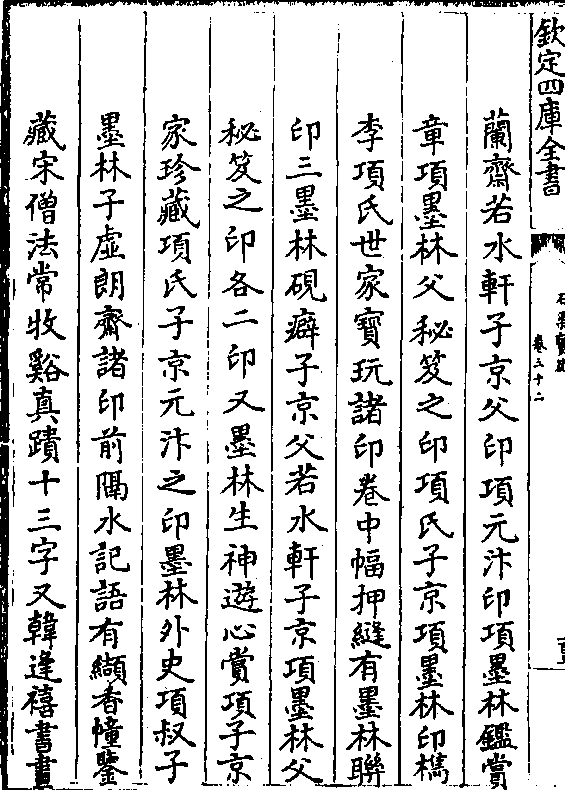 欽定四庫全書
石渠寶笈
卷三十二
蘭齋若水軒子京父印項元汴印項墨林鑑賞
章項墨林父秘笈之印項氏子京項墨林印檇
李項氏世家寶玩諸印卷中幅押縫有墨林聯
印三墨林硯癖子京父若水軒子京項墨林父
秘笈之印各二印又墨林生神遊心賞項子京
家珍藏項氏子京元汴之印墨林外史項叔子
墨林子虛朗齋諸印前隔水記語有纈香幢鑒
藏宋僧法常牧谿真蹟十三字又韓逢禧書畫